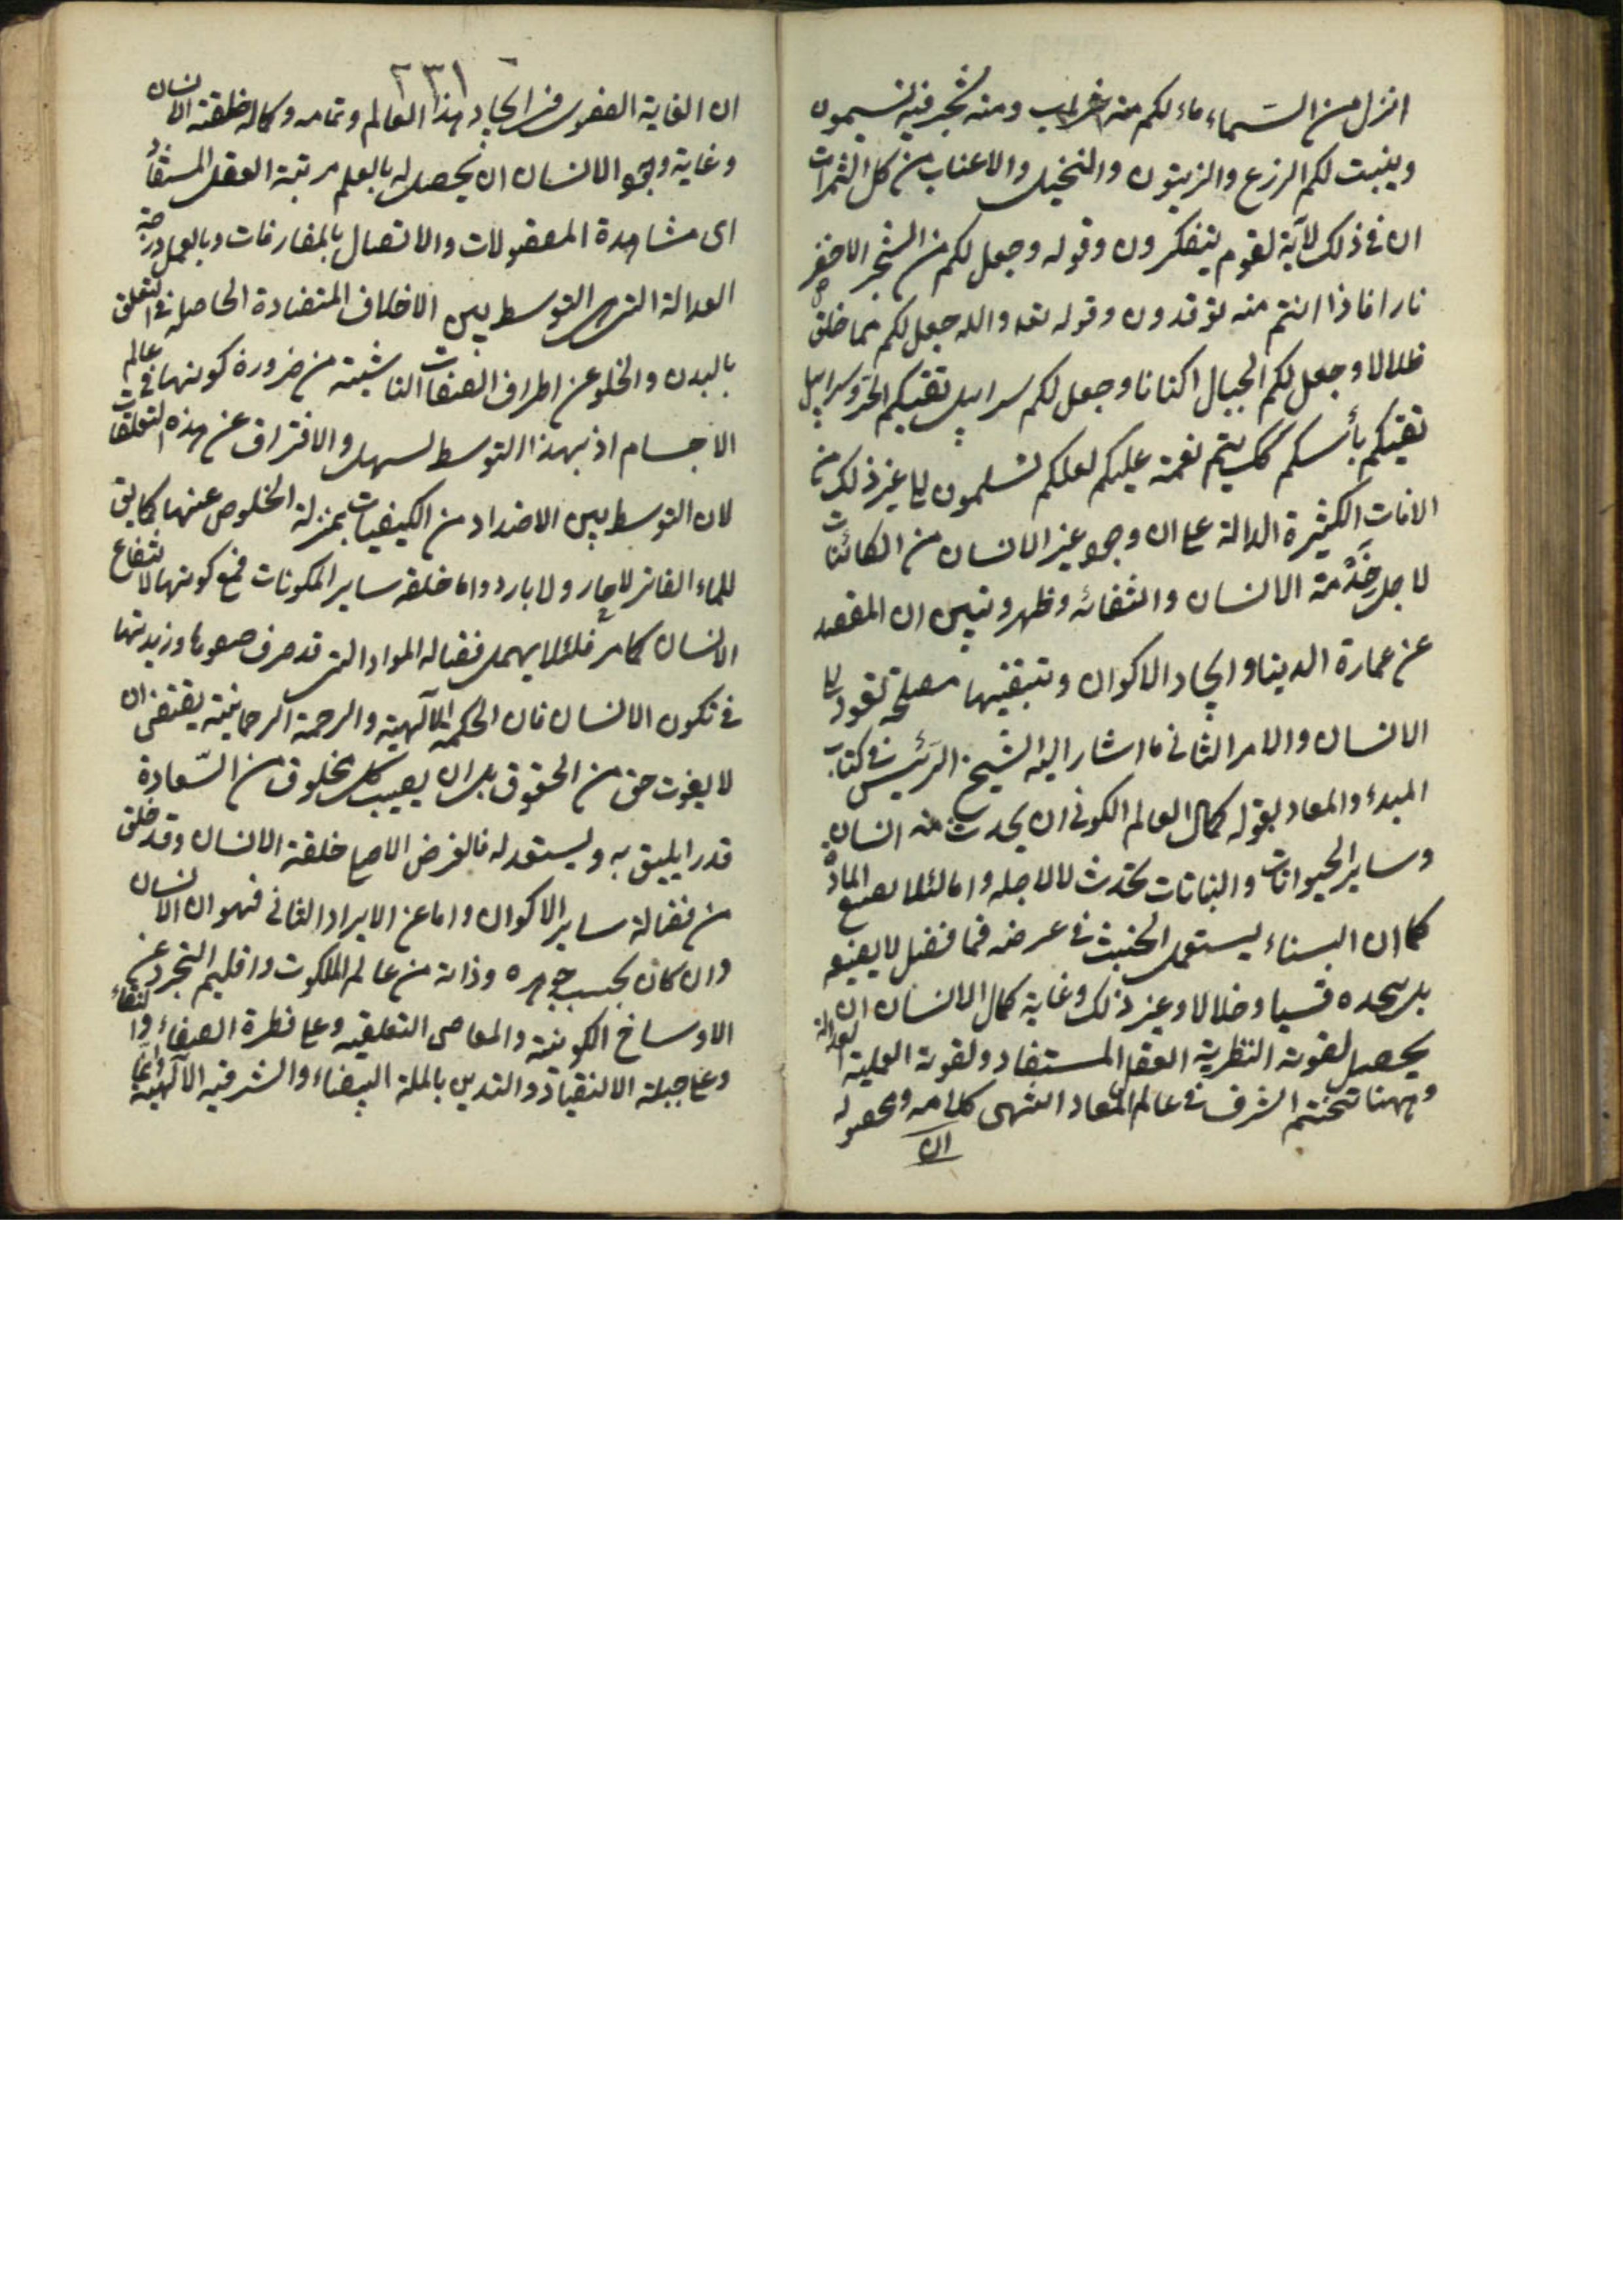 انزل من السماء ماء لكم منه شراب ومنه شجر فيه تسيمون
وينبت لكم الزرع والزيتون والنخيل والاعناب من كل الثمرات
ان فى ذلك لآية لقوم يتفكرون وقوله وجعل لكم من الشجر الاخضر
نارا فاذا انتم منه توقدون وقوله تعه والله جعل لكم مما خلق
ظلالا وجعل لكم الجبال اكنانا وجعل لكم سرابيل تقيكم الحر وسرابيل
تقيكم بأسكم كك يتم نعمته عليكم لعلكم تسلمون الى غير ذلك من
الايات الكثيرة الدالة على ان وجود غير الانسان من الكائنات
لاجل خدمة الانسان وانتفائه وظهر وتبين ان المقصد
عن عمارة الدنيا وايجاد الاكوان وتبقيتها مصلحة تعود الى
الانسان والامر الثانى ما اشار اليه الشيخ الرئيس فى كتاب
المبدء والمعاد بقوله كمال العالم الكونى ان يحدث منه انسان
وساير الحيوانات والنباتات يحدث لا لاجله واما لئلا يضيع المادة
كما ان البناء يستعمل الخشب فى غرضه فما فضل لا يضيعه
بل يتخذه قسيا وخلالا وغير ذلك وغاية كمال الانسان ان
يحصل لقوته النظرية العقل المستفاد ولقوته العملية العدالة
وههنا تختتم الشرف فى عالم المعاد انتهى كلامه ومحصوله
ان
٢٣١
ان الغاية القصوى فى ايجاد هذا العالم وتمامه وكماله خلقة الانسان
وغاية وجود الانسان ان يحصل له بالعلم مرتبة العقل المستفاد
اى مشاهدة المعقولات والاتصال بالمفارقات وبالعمل درجة
العدالة التى هى التوسط بين الاخلاق المتضادة الحاصله فى التعلق
بالبدن والخلو عن اطراف الصفات الناشئة من ضرورة كونها فى عالم
الاجسام اذ بهذا التوسط لسهل والافتراق عن هذه التعلقات
لان التوسط بين الاضداد من الكيفيات بمنزلة الخلوص عنها كما يق
للماء الفاتر لا حار ولا بارد واما خلقه ساير المكونات فمع كونها لانتفاع
الانسان كما مر فلئلا يهمل فضاله المواد التى قد صرف صفوها وزبدتها
فى تكون الانسان فان الحكمه الآلهية والرحمة الرحمانية يقتضى ان
لا يفوت حق من الحقوق بل ان يصيب كل مخلوق من السعادة
قدرا يليق به ويستعد له فالغرض الاصلى خلقة الانسان وقد خلق
من فضالة ساير الاكوان واما عن الايراد الثانى فهو ان الانسان
وان كان بحسب جوهره وذاته من عالم الملكوت واقليم التجرد عن
الاوساخ الكونية والمعاصى التعلقيه وعلى فطرة الصفاء والنقاء
وعلى جبلة الانقياد والتدين بالملة البيضاء والشرفيه الآلهية وانما